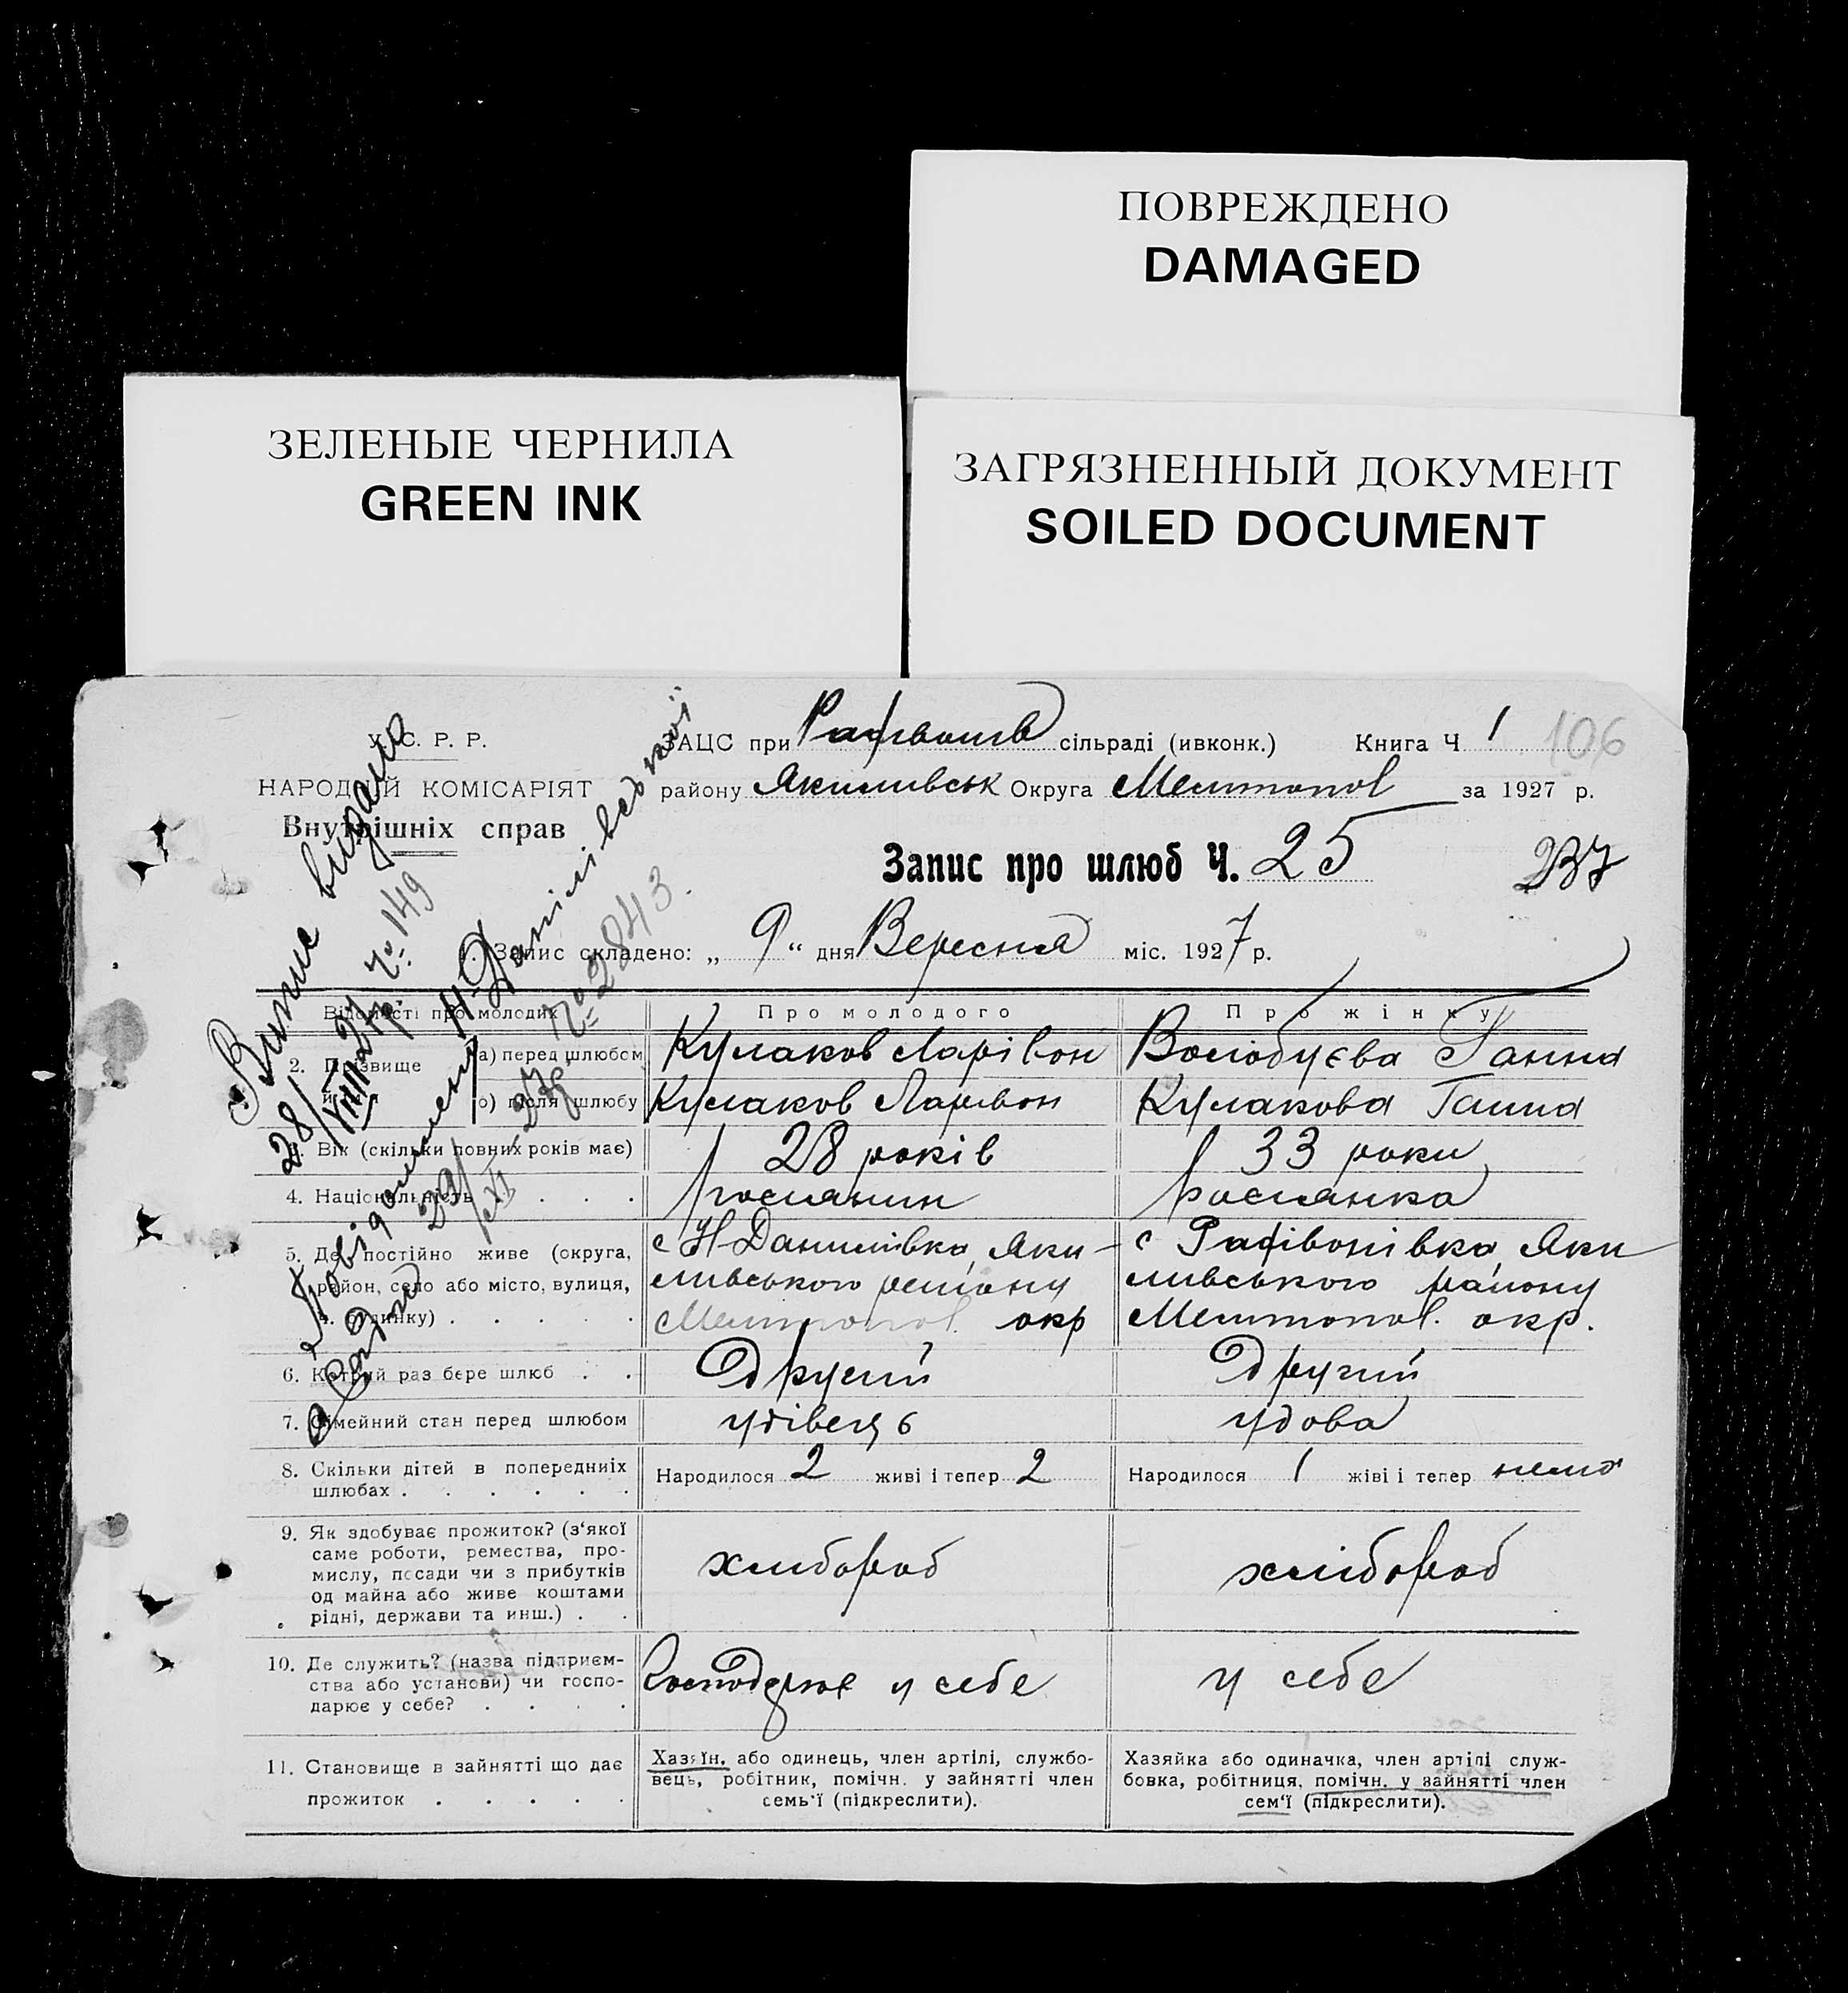 ПОВРЕЖДЕНО
DAMAGED
ЗЕЛЕНЫЕ ЧЕРНИЛА
GREEN INK
ЗАГРЯЗНЕННЫЙ ДОКУМЕНТ
SOILED DOCUMENT
У. С. Р. Р.
НАРОДНИЙ КОМІСАРІЯТ
Внутрішніх справ
ЗАЦС при сільраді (ивконк.) Книга Ч 1 106
району Якимивськ Округа Мелитопол за 1927 р.
Запис про шлюб Ч. 25 237
1. Запис складено: „ 9 “ дня Вересня міс. 1927 р.
Випис видано
28/VIII 27р № 149
Повідомлено Н-Данилівської
29/XI 27р № 2843.
Відомості про молодих
Про молодого
Про жінку
2. Прізвище й ім'я
а) перед шлюбом Кулаков Ларівон Волобуєва Ганна
б) після шлюбу Кулаков Ларивон Кулакова Ганна
3. Вік (скільки повних років має) 28 років 33 роки
4. Національність . . . . росиянин росиянка
5. Де постійно живе (округа, район, село або місто, вулиця, ч. будинку) . . . . .
с Н-Данилівка, Яки-
мивського району
Мелитопол. окр
с Рафівонівка Яки
мивського району
Мелитопол. окр.
6. Котрий раз бере шлюб . . Другий Другий
7. Сімейний стан перед шлюбом удівець удова
8. Скільки дітей в попередниіх
шлюбах . . . . . .
Народилося 2 живі і тепер 2
Народилося 1 жіві і тепер нема
9. Як здобуває прожиток? (з‘якої
саме роботи, ремества, про-
мислу, посади чи з прибутків
од майна або живе коштами
рідні, держави та инш.) . .
хлибороб
хлібороб
10. Де служить? (назва підприєм-
ства або установи) чи госпо-
дарює у себе? . . . .
Господарює у себе
у себе
11. Становище в зайнятті що дає
прожиток . . . . .
Хазяїн, або одинець, член артілі, службо-
вець, робітник, помічн. у зайнятті член
семь‘ї (підкреслити).
Хазяйка або одиначка, член артілі служ-
бовка, робітниця, помічн. у зайнятті член
сем‘ї (підкреслити).